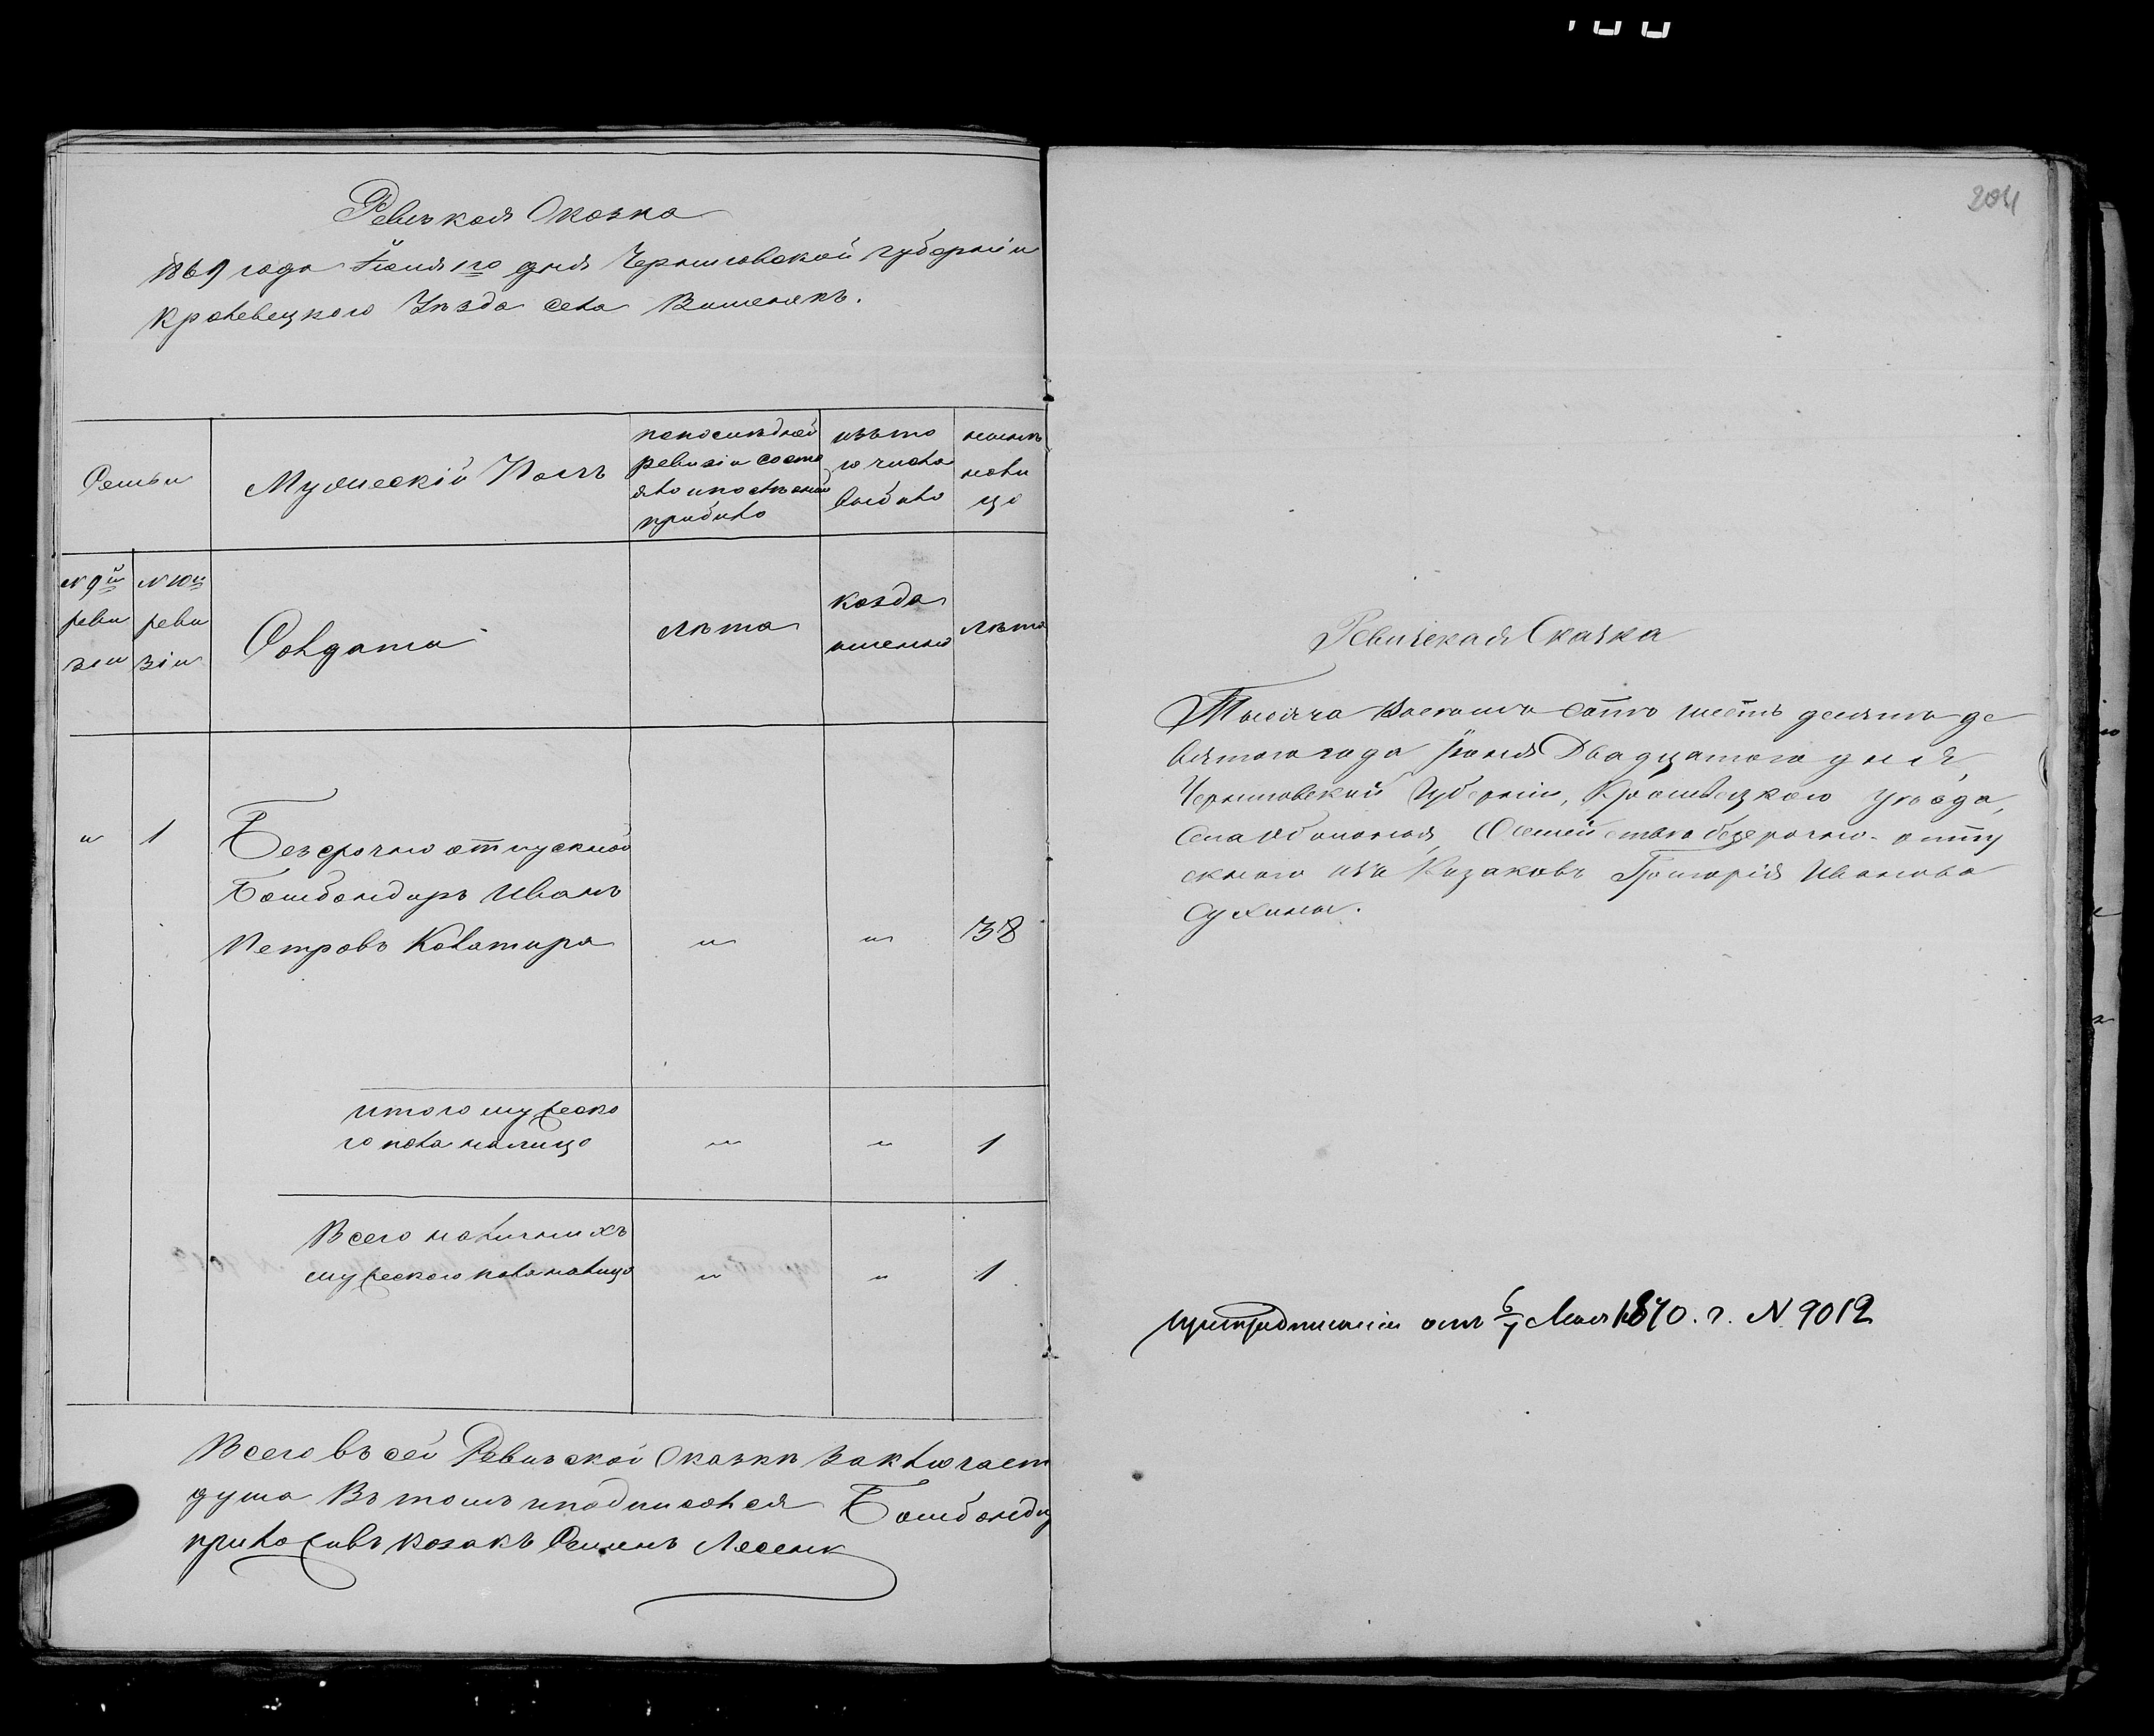 Ревизкая Сказка
1869 года Іюня 1го дня Черниговской губерніи
Кролевецкого Уѣзда села Вишенекъ.
Семьи
Мужескій Полъ
попослѣдней
ревизіи состо
яло и послѣ оной
прибыло
изъ то
го числа
выбыло
нынѣ
нали
цо
N 9й
реви
зіи
N 10й
реви
зіи
Солдаты
лѣта
когда
именно
лѣта
„ 1
Безсрочно отпускной
Бомбондиръ Иванъ
Петровъ Колатира „ „ 38
итого мужеско
го пола налицо „ „ 1
Всего наличныхъ
мужеского пола налицо „ „ 1
Всего въ сей Ревизской Сказкѣ заключает
душа Въ томъ и подписался Бомбонди
приложивъ козакъ Семенъ Лесенк
204
Ревизская Сказка
Тысяча Восемьсотъ шестьдесятъ де
вятого года Іюня Двадцатого дня,
Черниговской Губерніи, Кролевецкого уѣзда,
Села Оболонья, О семействѣ безсрочно-отпу
скного изъ Козаковъ Григорія Иванова
Сухины.
при предписаніи отъ 6/7 Мая 1870. г. N 9012